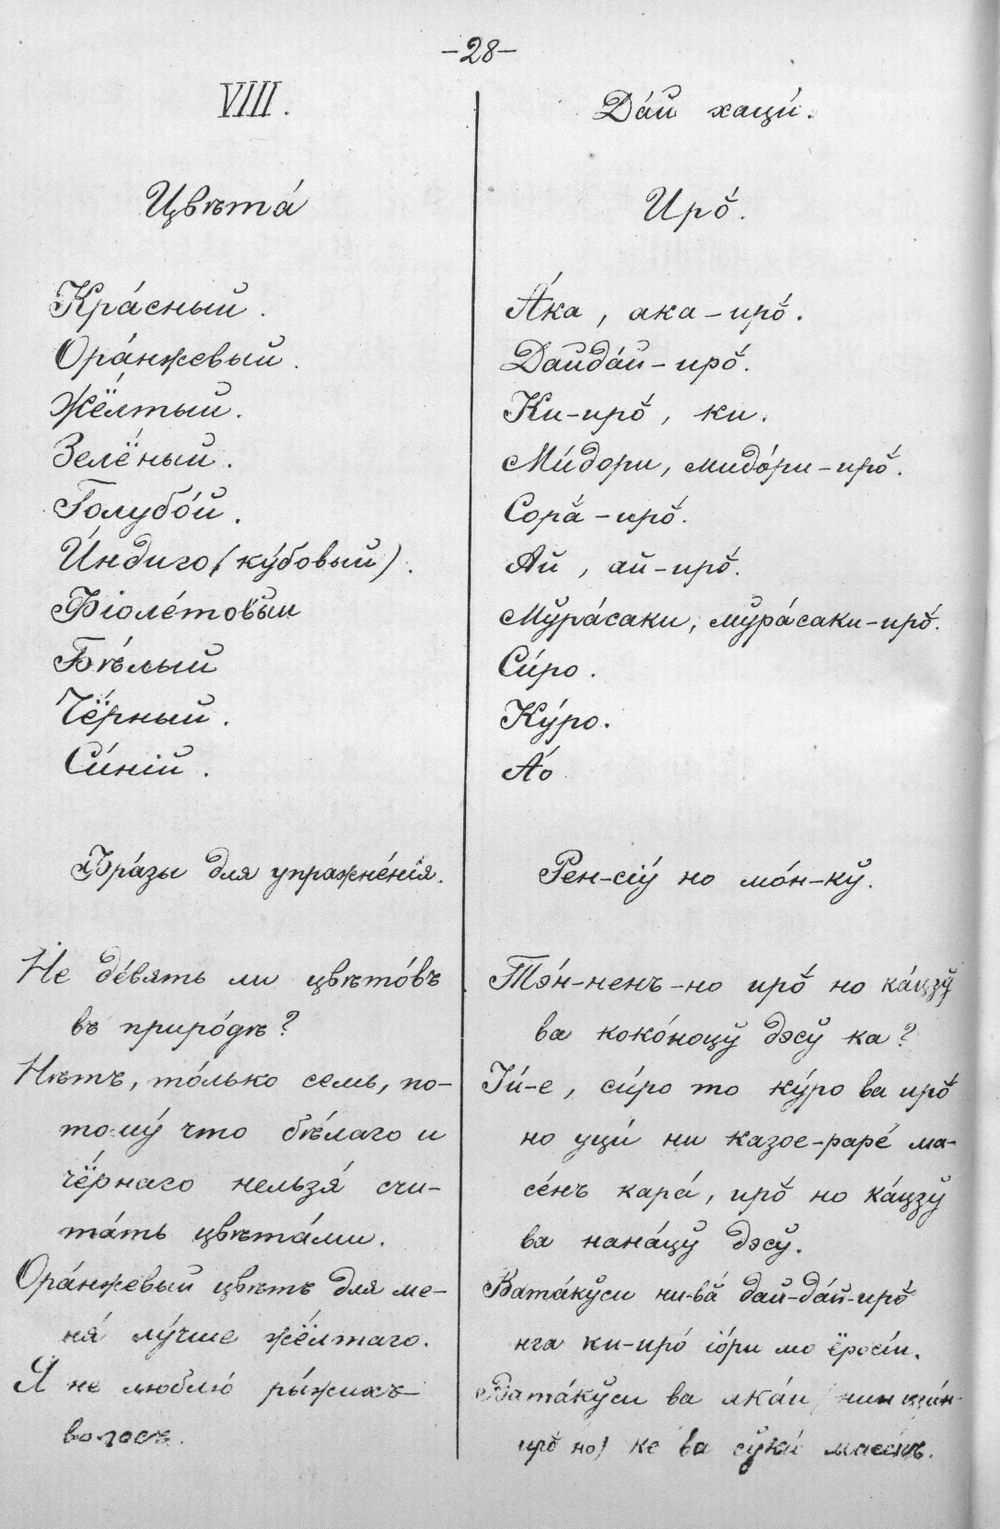 -28-
VIII.
Цвѣта́
Кра́сный.
Ора́нжевый.
Жё́лтый.
Зелё́ный.
Голубо́й.
И́ндиго (ку́бовый).
Фіоле́товый
Бѣ́лый
Чё́рный.
Си́ній.
Фра́зы для упражне́нія.
Не де́вять ли цвѣто́въ
въ приро́дѣ?
Нѣтъ, то́лько семь, по-
тому́ что бѣ́лаго и
чё́рнаго нельзя́ счи-
та́ть цвѣта́ми.
Ора́нжевый цвѣтъ для ме-
ня́ лу́чше жё́лтаго.
Я не люблю́ ры́жихъ
волосъ.
Да́й хаци́.
Иро̆́.
А́ка, ака-иро̆́.
Дайда́й-иро̆́.
Ки-иро̆́, ки.
Ми́дори, мидо́ри-иро̆́.
Сорӑ́-иро̆́.
Ай, ай-иро̆́.
Мўра́саки, мўра́саки-иро̆́.
Си́ро.
Ку́ро.
А́о
Рен-сіу́ но мо́н-кў.
Тэ́н-ненъ-но иро̆́ но ка́цзў
ва коко́ноцў дэсў ка?
Іи́-е, си́ро то ку́ро ва иро̆́
но уци́ ни казое-раре́ ма-
се́нъ кара́, иро̆́ но ка́цзў
ва нана́цў дэсў.
Вата́кўси ни-вӑ́ дай-да́й-иро̆́
нга ки-иро́ іо́ри мо ё̆росі́и.
Вата́кўси ва ака́и (нин
иро̆ но) ке ва сўки́ масенъ.